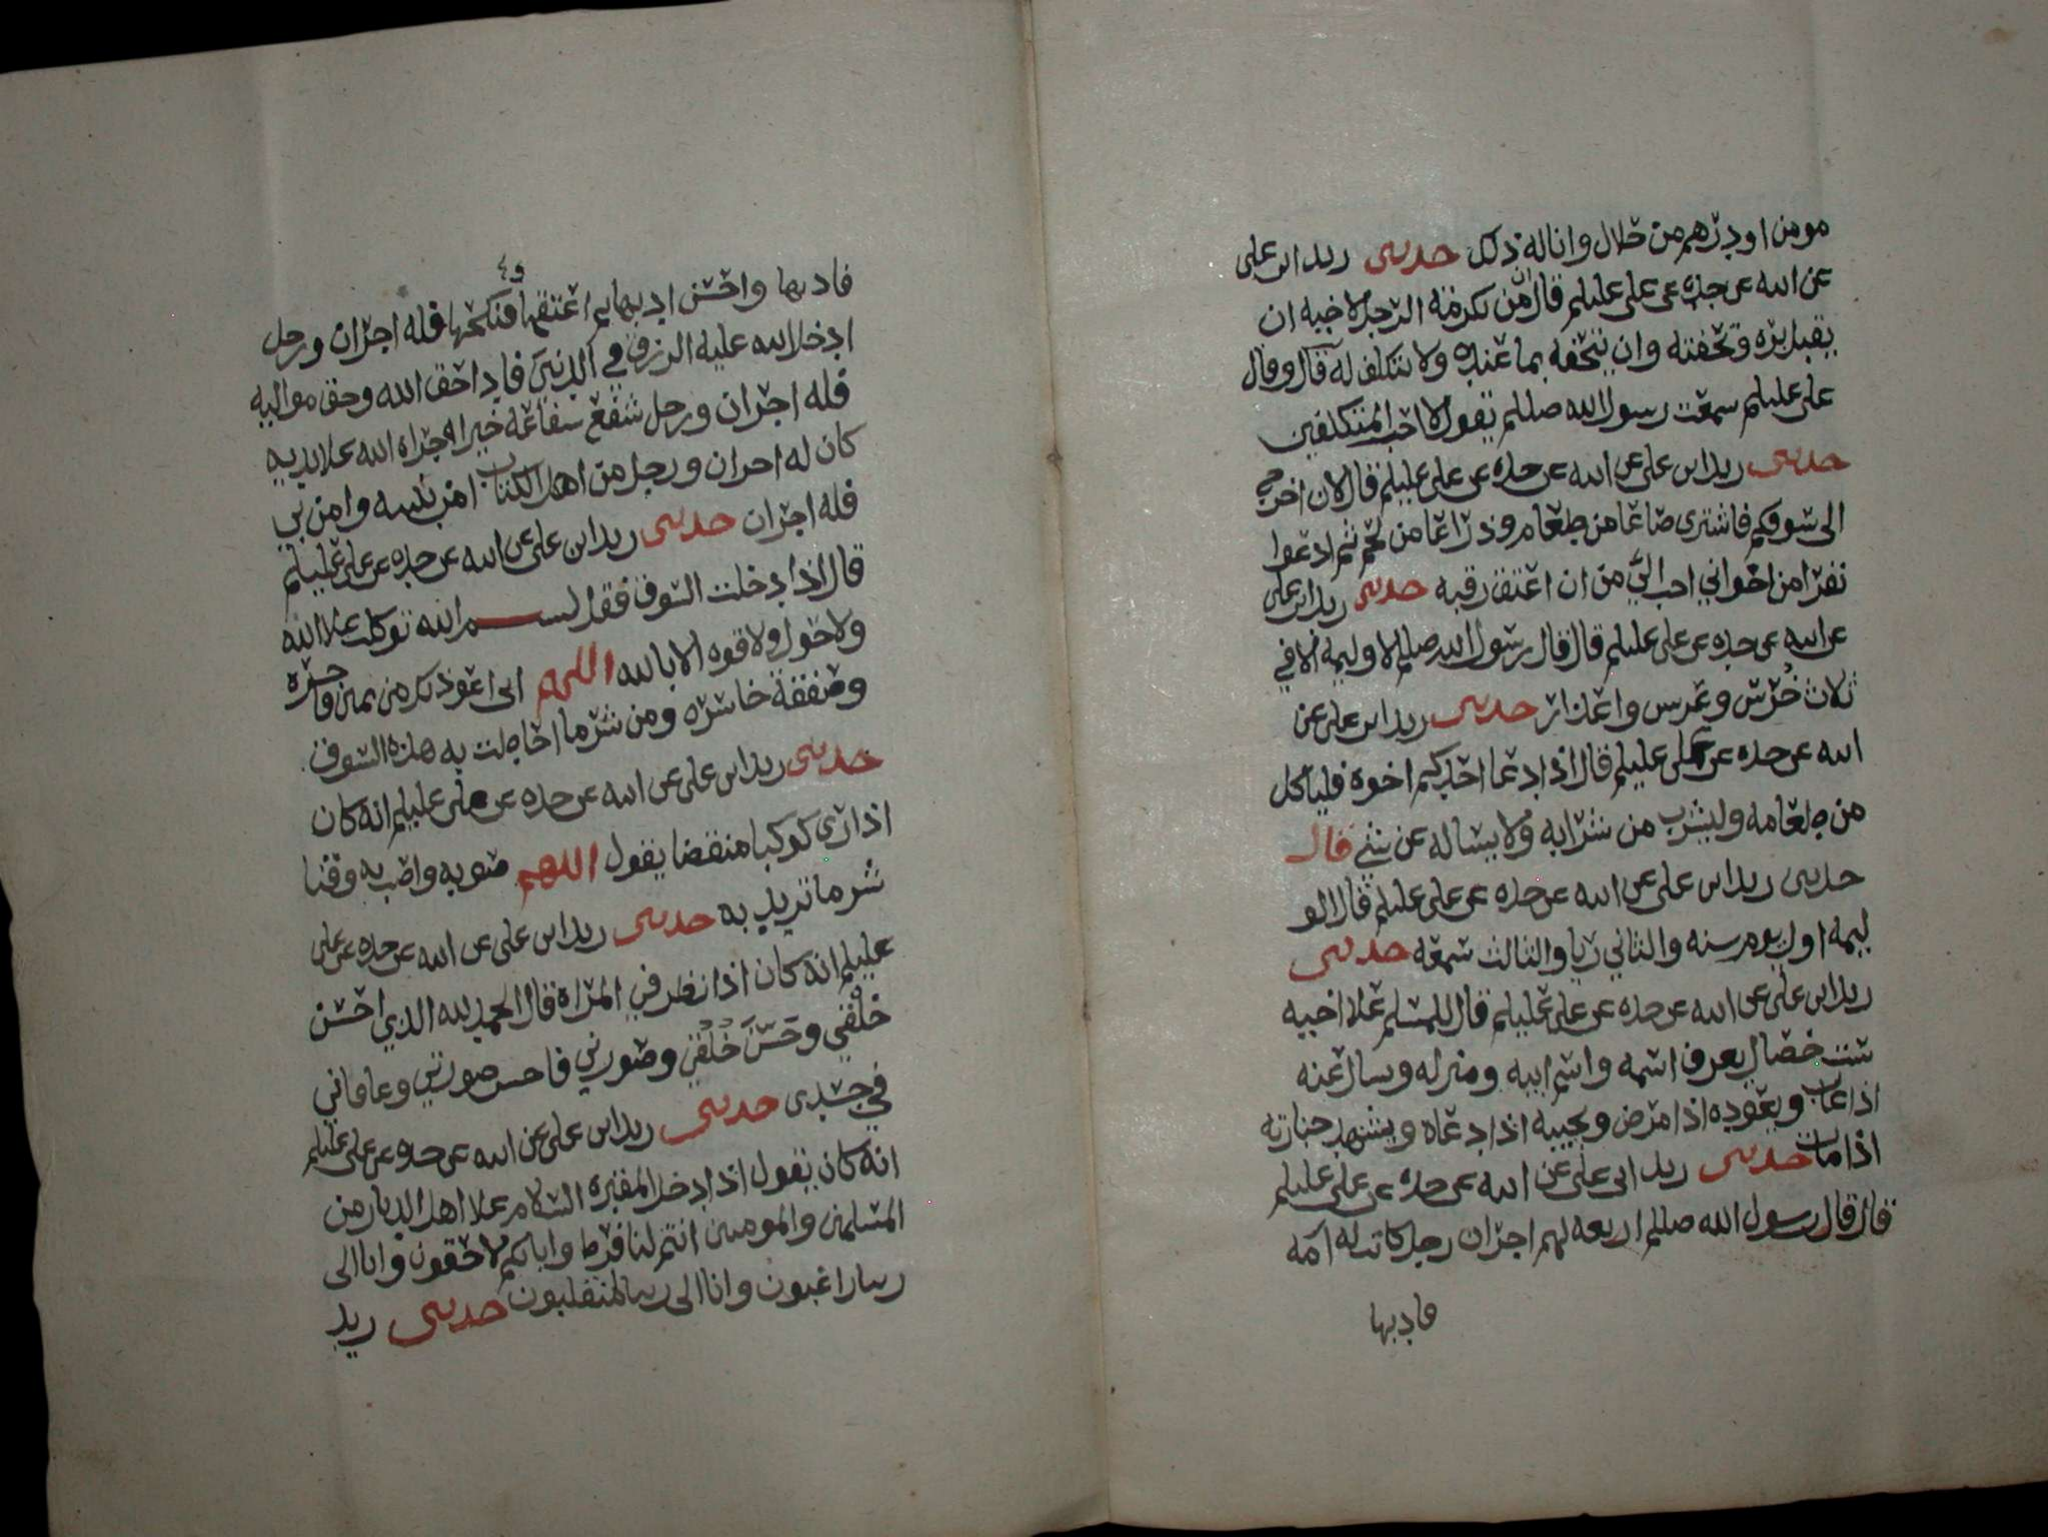 مومن او درهم من حلال وانا له ذلك حدثني زيد ابن علي
عن ابيه عن جده عن علي عليلم قال ان من تكرمة الرجل لاخيه ان
يقبل بره وتحفته وان يتحفه بما عنده ولا يتكلف له قال وقال
علي عليلم سمعت رسول الله صللم يقول لا احب المتكلفين
حدثني زيد ابن علي عن ابيه عن جده عن علي عليلم قال لان اخرج
الى سوقكم فاشتري صاعا من طعام وذراعا من لحم ثم ادعوا
نفرا من اخواني احب الي من ان اعتق رقبه حدثني زيد ابن علي
عن ابيه عن جده عن علي عليلم قال قال رسول الله صللم لا وليمة الا في
ثلاث خرس وعرس واعذار حدثني زيد ابن علي عن
ابيه عن جده عن علي عليلم قال اذا دعا احدكم اخوه فلياكل
من طعامه وليشرب من شرابه ولا يساله عن شي قال
حدثني زيد ابن علي عن ابيه عن جده عن علي عليلم قال الو
ليمه اول يوم سنه والثاني ريا والثالث سمعه حدثني
زيد ابن علي عن ابيه عن جده عن علي عليلم قال للمسلم علا اخيه
ست خصال يعرف اسمه واسم ابيه ومنزله ويسال عنه
اذا غاب ويعوده اذا مرض ويجيبه اذا دعاه ويشهد جنازته
اذا مات حدثني زيد ابن علي عن ابيه عن جده عن علي عليلم
قال قال رسول الله صللم اربعه لهم اجران رجل كانت له امه
فادبها
فادبها واحسن ادبها ثم اعتقها فنكحها فله اجران ورجل
ادخل الله عليه الرزق في الدنيا فادا حق الله وحق مواليه
فله اجران ورجل شفع شفاعة خير اجراه الله علا يديه
كان له اجران ورجل من اهل الكتاب امن بنبيه وامن بي
فله اجران حدثني زيد ابن علي عن ابيه عن جده عن علي عليلم
قال اذا دخلت السوق فقل بسم الله توكلت علا الله
ولا حول ولا قوه الا بالله اللهم اني اعوذ بك من يمين فاجره
وصفقة خاسره ومن شر ما احاطت به هذه السوق
حدثني زيد ابن علي عن ابيه عن جده عن علي عليلم انه كان
اذا رى كوكبا منقضا يقول اللهم صوبه واصب به وقنا
شر ما تريد به حدثني زيد ابن علي عن ابيه عن جده عن علي
عليلم انه كان اذا نظر في المراه قال الحمد لله الذي احسن
خلقي وحسن خلقي وصورني فاحسن صورتي وعافاني
في جسدي حدثني زيد ابن علي عن ابيه عن جده عن علي عليلم
انه كان يقول اذا دخل المقبره السلام علا اهل الديار من
المسلمين والمومنين انتم لنا فرط وانا بكم لاحقون وانا الى
ربنا راغبون وانا الى ربنا لمنقلبون حدثني زيد